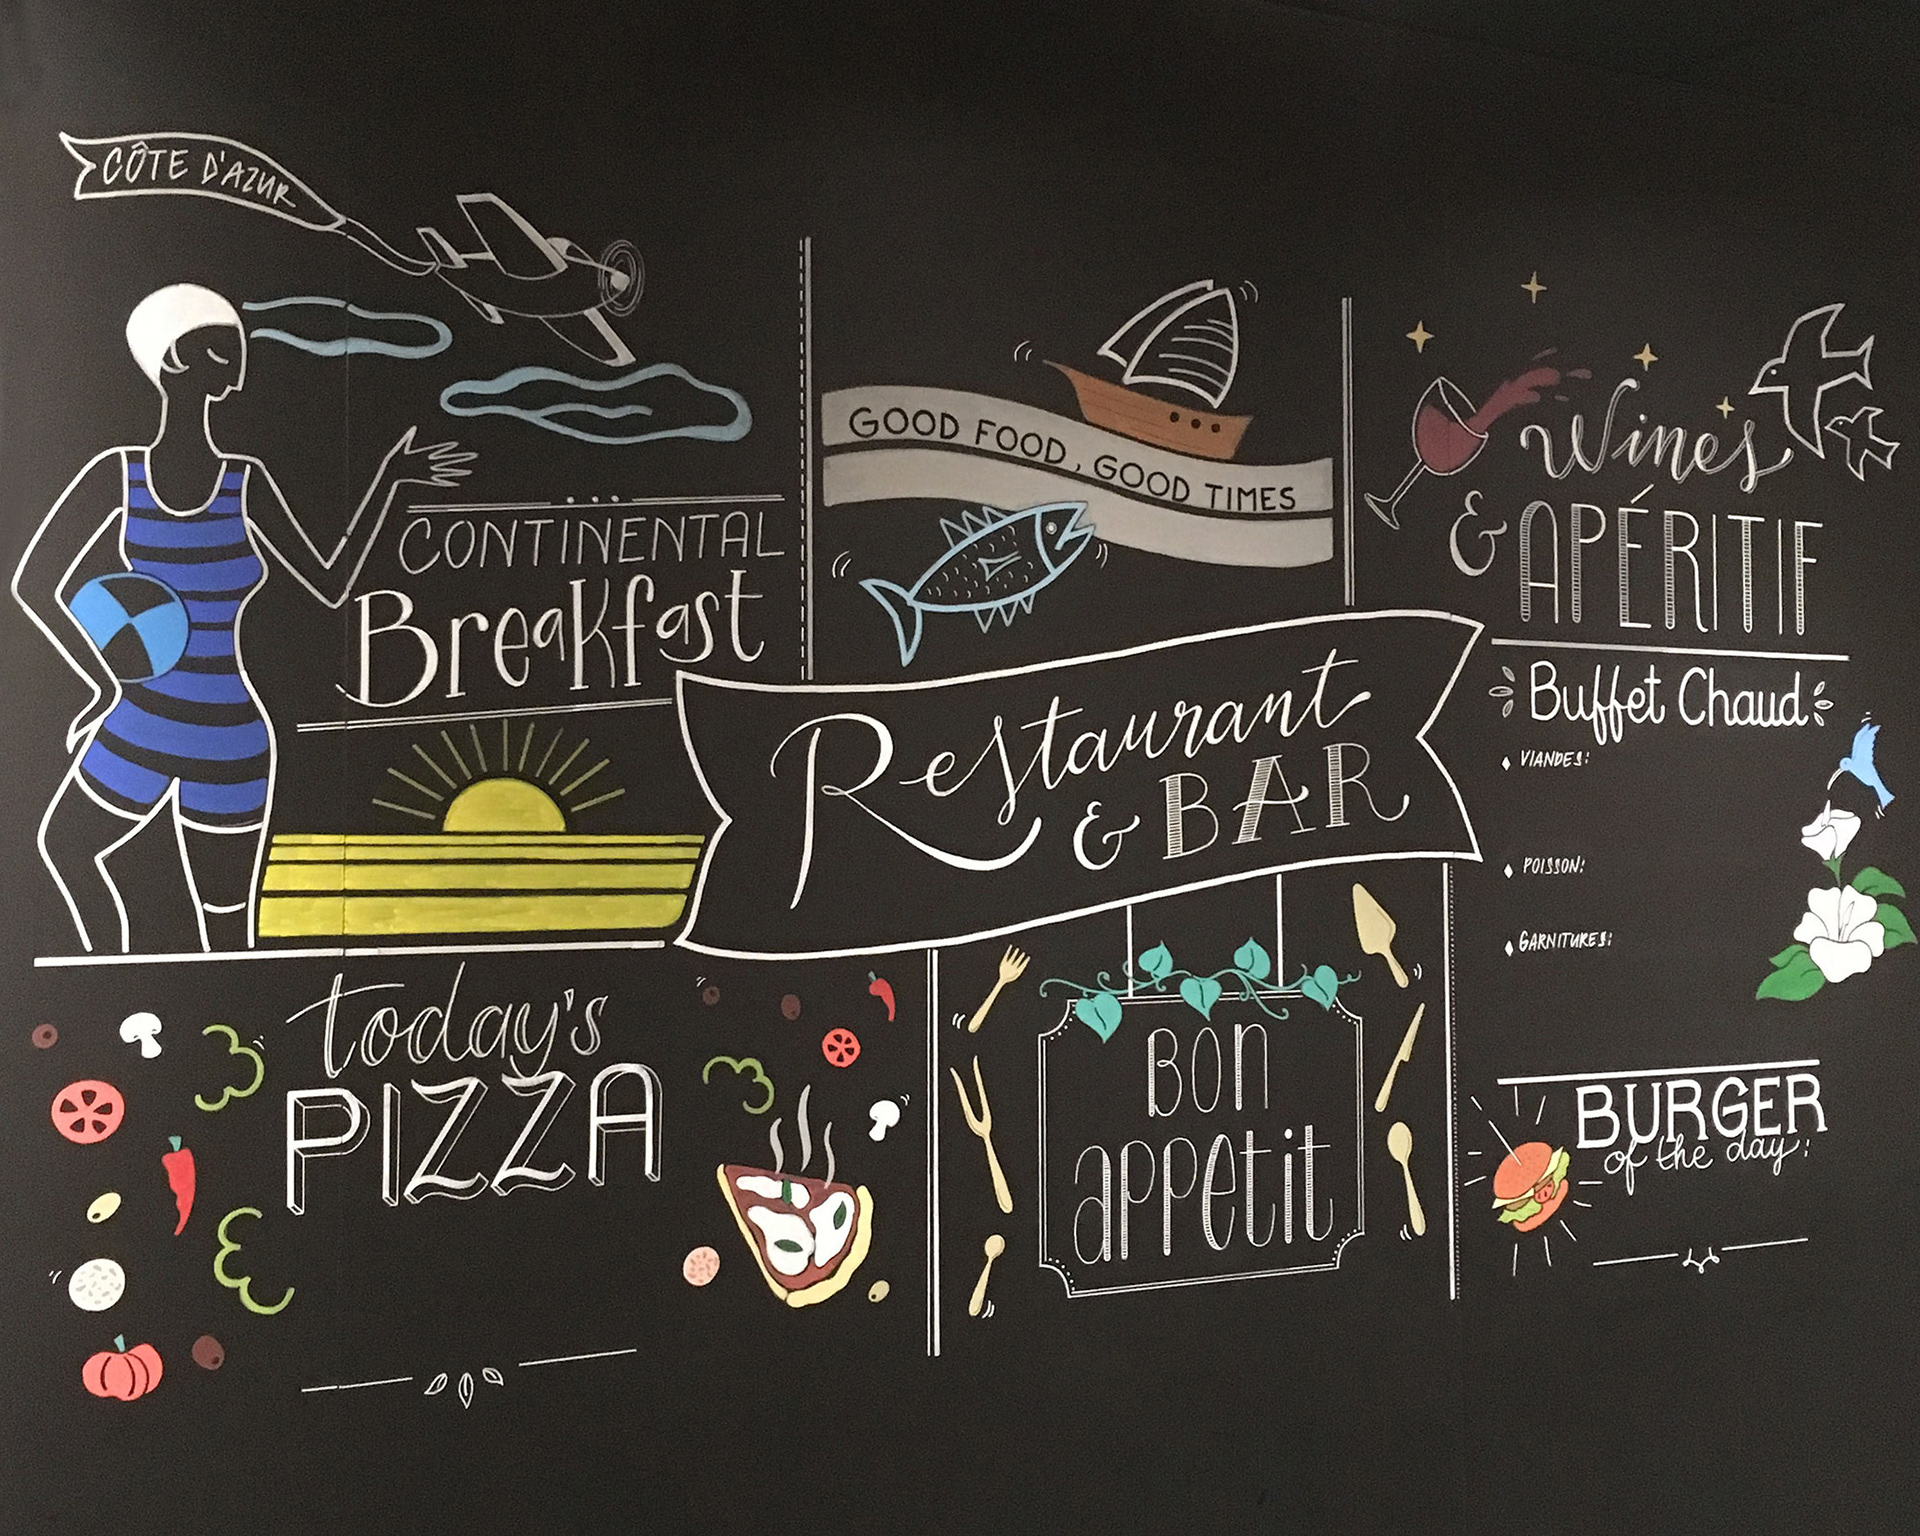 CÔTE D'AZUR
CONTINENTAL
Breakfast
GOOD FOOD, GOOD TIMES
Wines
& APÉRITIF
Restaurant
& BAR
Buffet Chaud
VIANDES:
POISSON:
GARNITURES:
today's
PIZZA
BON
appetit
BURGER
of the day: